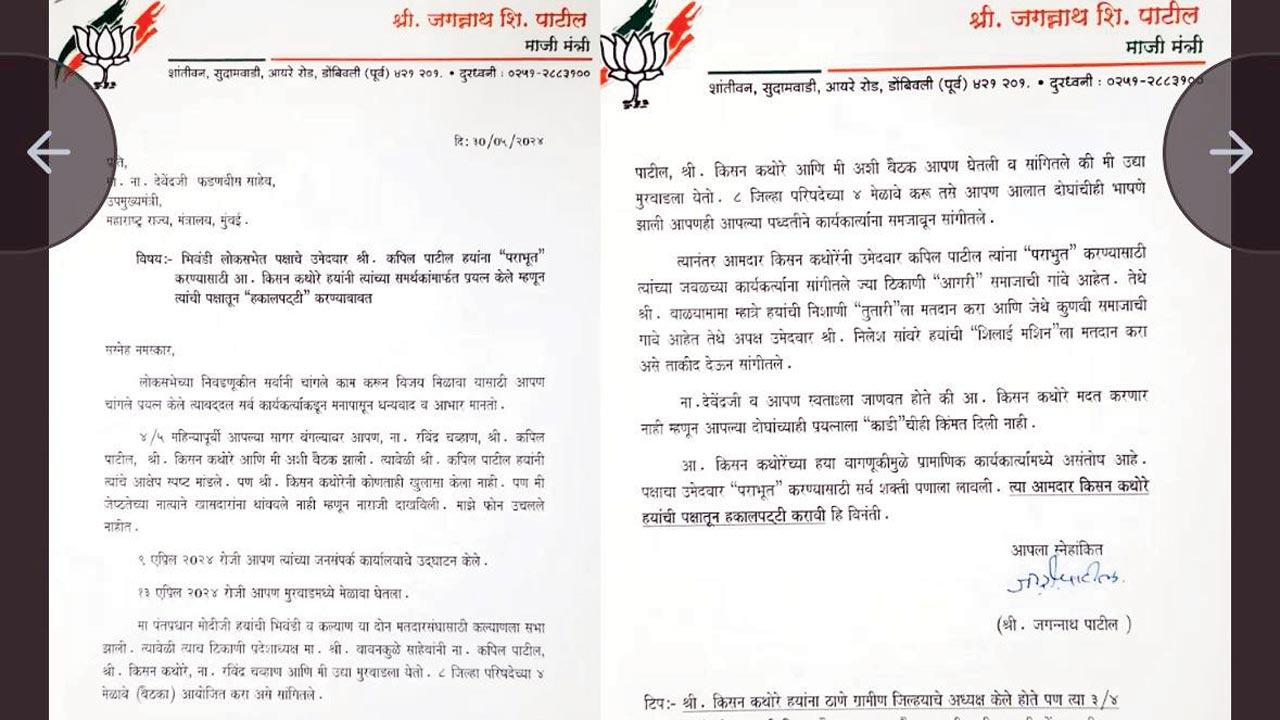 श्री. जगन्नाथ शि. पाटील
माजी मंत्री
शांतीवन, सुदामवाडी, आयरे रोड, डोंबिवली (पूर्व) ४२१ २०१. • दुरध्वनी : ०२५१-२८८३१००
दि: ३०/०५/२०२४
प्रति,
मा. ना. देवेंद्रजी फडणवीस साहेव,
उपमुख्यमंत्री,
महाराष्ट्र राज्य, मंत्रालय, मुंवई.
विषय:- भिवंडी लोकसभेत पक्षाचे उमेदवार श्री. कपिल पाटील हयांना "पराभूत"
करण्यासाठी आ. किसन कथोरे हयांनी त्यांच्या समर्थकांमार्फत प्रयत्न केले म्हणून
त्यांची पक्षातून "हकालपट्टी" करण्यावावत
सस्नेह नमस्कार,
लोकसभेच्या निवडणूकीत सर्वानी चांगले काम करून विजय मिळावा यासाठी आपण
चांगले प्रयत्न केले त्यावद्दल सर्व कार्यकर्त्याकडून मनापासून धन्यवाद व आभार मानतो.
४/५ महिन्यापूर्वी आपल्या सागर वंगल्यावर आपण, ना. रविंद्र चव्हाण, श्री. कपिल
पाटील, श्री. किसन कथोरे आणि मी अशी वैठक झाली. त्यावेळी श्री. कपिल पाटील हयांनी
त्यांचे आक्षेप स्पष्ट मांडले. पण श्री. किसन कथोरेनी कोणताही खुलासा केला नाही. पण मी
जेष्ठतेच्या नात्याने खासदारांना थांववले नाही म्हणून नाराजी दाखविली. माझे फोन उचलले
नाहीत.
९ एप्रिल २०२४ रोजी आपण त्यांच्या जनसंपर्क कार्यालयाचे उद्घाटन केले.
१३ एप्रिल २०२४ रोजी आपण मुरवाडमध्ये मेळावा घेतला.
मा पंतप्रधान मोदीजी हयांची भिवंडी व कल्याण या दोन मतदारसंघासाठी कल्याणला सभा
झाली. त्यावेळी त्याच टिकाणी प्रदेशाध्यक्ष मा. श्री. वावनकुळे साहेवांनी ना. कपिल पाटील,
श्री. किसन कथोरे, ना. रविंद्र चव्हाण आणि मी उद्या मुरवाडला येतो. ८ जिल्हा परिषदेच्या ४
मेळावे (वैटका) आयोजित करा असे सांगितले.
श्री. जगन्नाथ शि. पाटील
माजी मंत्री
शांतीवन, सुदामवाडी, आयरे रोड, डोंबिवली (पूर्व) ४२१ २०१. • दुरध्वनी : ०२५१-२८८३१००
पाटील, श्री. किसन कथोरे आणि मी अशी वैठक आपण घेतली व सांगितले की मी उद्या
मुरवाडला येतो. ८ जिल्हा परिषदेच्या ४ मेळावे करू तसे आपण आलात दोघांचीही भाषणे
झाली आपणही आपल्या पध्दतीने कार्यकर्त्याना समजावून सांगीतले.
त्यानंतर आमदार किसन कथोरेंनी उमेदवार कपिल पाटील त्यांना "पराभुत" करण्यासाठी
त्यांच्या जवळच्या कार्यकर्त्याना सांगीतले ज्या ठिकाणी "आगरी" समाजाची गांवे आहेत. तेथे
श्री. वाळयामामा म्हात्रे हयांची निशाणी "तुतारी"ला मतदान करा आणि जेथे कुणवी समाजाची
गावे आहेत तेथे अपक्ष उमेदवार श्री. निलेश सांवरे हयांची "शिलाई मशिन"ला मतदान करा
असे ताकीद देऊन सांगीतले.
ना.देवेंद्रजी व आपण स्वताःला जाणवत होते की आ. किसन कथोरे मदत करणार
नाही म्हणून आपल्या दोघांच्याही प्रयत्नाला "काडी"चीही किंमत दिली नाही.
आ. किसन कथोरेंच्या हया वागणूकीमुळे प्रामाणिक कार्यकर्त्यामध्ये असंतोप आहे.
पक्षाचा उमेदवार "पराभूत" करण्यासाठी सर्व शक्ती पणाला लावली. त्या आमदार किसन कथोरे
हयांची पक्षातून हकालपट्टी करावी हि विनंती.
आपला स्नेहांकित
(श्री. जगन्नाथ पाटील )
टिप:- श्री. किसन कथोरे हयांना ठाणे ग्रामीण जिल्हयाचे अध्यक्ष केले होते पण त्या ३/४